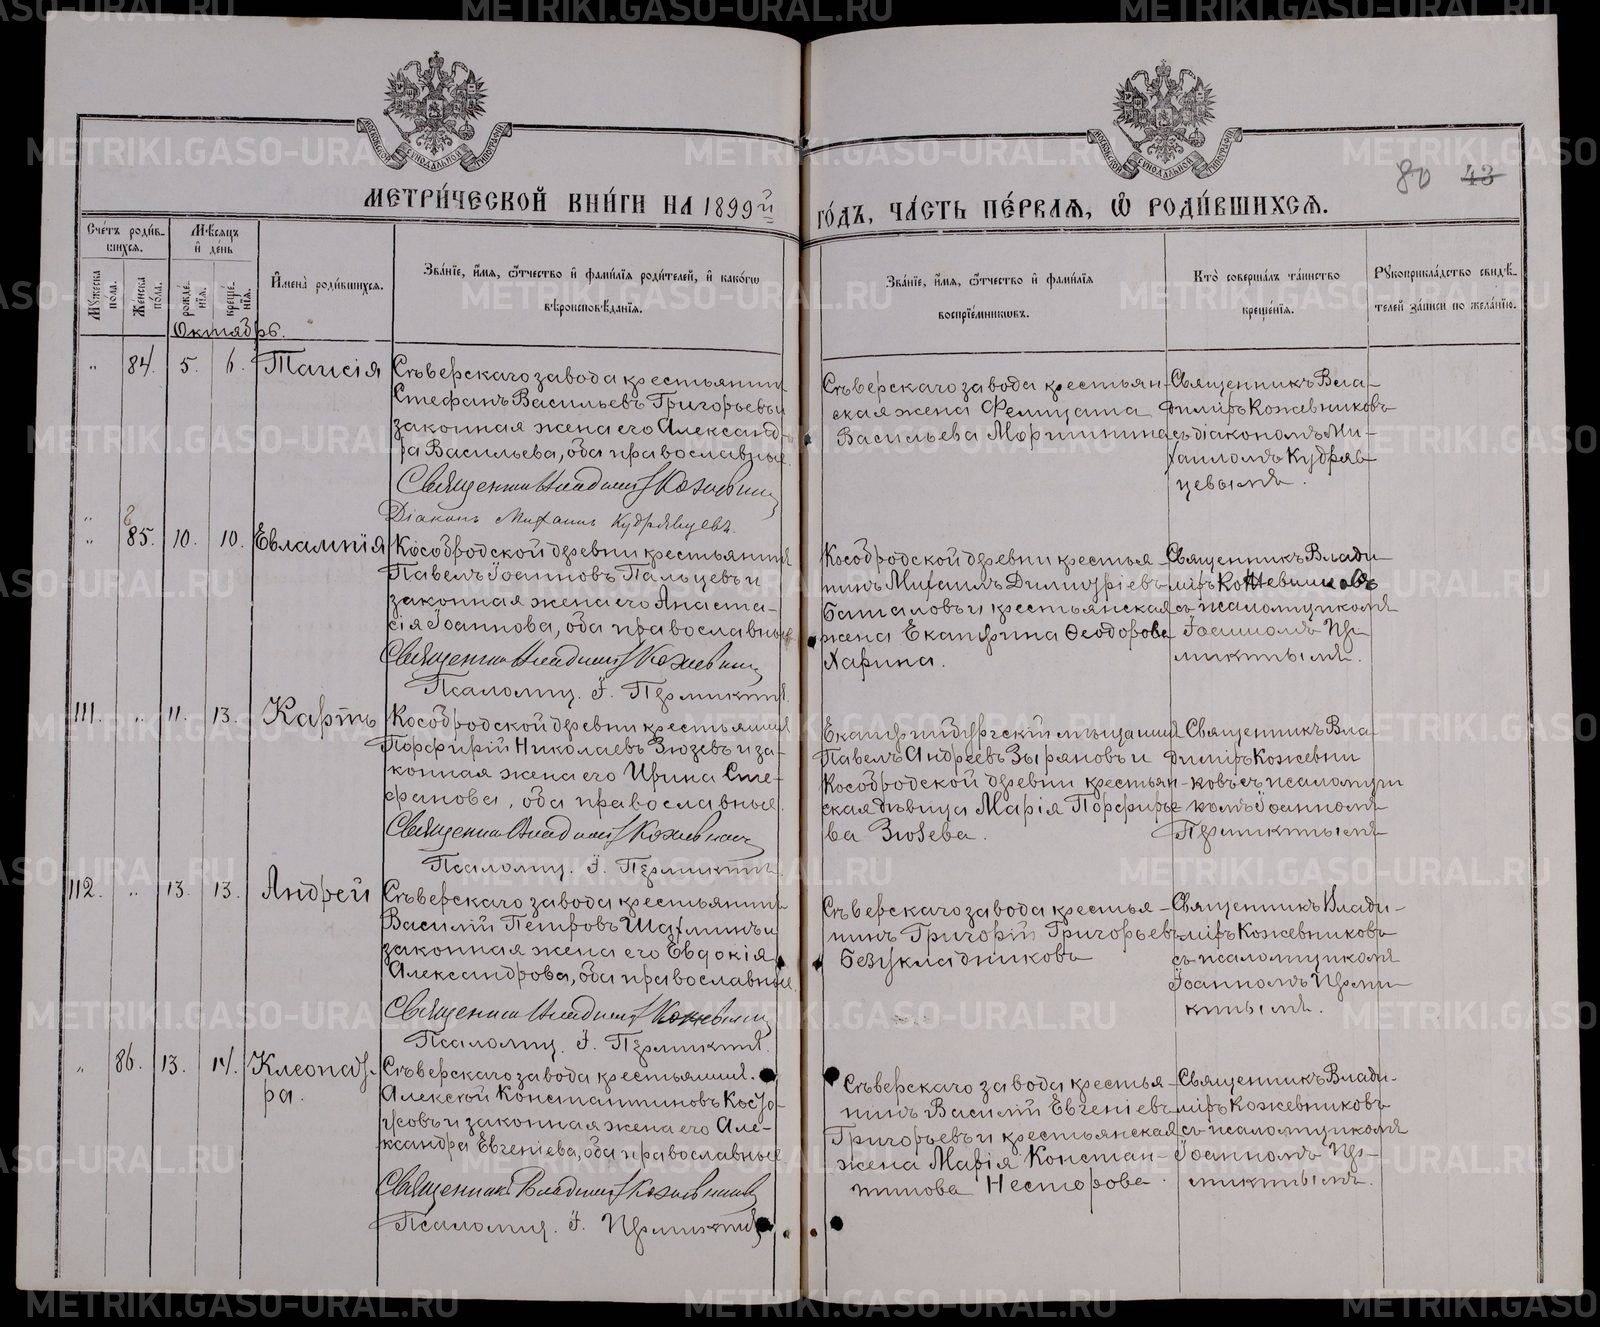 МЕТРИ́ЧЕСКОЙ КНИ́ГИ НА 1899й
ГО́ДЪ, ЧА́СТЬ ПЕ́РВАѦ, Ѡ҆ РОДИ́ВШИХСѦ.
80 43
МОСКОВСКОЙ СѴНОДАЛЬНОЙ ТИПОГРАФІИ
МОСКОВСКОЙ СѴНОДАЛЬНОЙ ТИПОГРАФІИ
Сче́тъ роди́в-
шихсѧ.
Мѣ́сѧцъ
и҆ де́нь
Мꙋ́жеска по́ла.
Же́нска по́ла.
рожде́-
нїѧ.
креще́-
нїѧ.
И҆мена̀ роди́вшихсѧ.
Зва́нїе, и҆́мѧ, ѻ҆́тчество и҆ фами́лїѧ роди́телей, и҆ како́гѡ
вѣроисповѣ́данїѧ.
Зва́нїе, и҆́мѧ, ѻ҆́тчество и҆ фами́лїѧ
воспрїе́мникѡвъ.
Кто̀ соверша́лъ та́инство
креще́нїѧ.
Рꙋкоприкла́дство свидѣ́-
телей за́писи по жела́нїю.
Октябрь.
„ 84. 5. 6. Таисія
Сѣверскаго завода крестьянинъ
Стефанъ Васильевъ Григорьевъ и
законная жена его Александ-
ра Васильева, оба православные.
Священникъ Владимиръ Кожевник
Діаконъ Михаилъ Кудрявцевъ.
Сѣверскаго завода крестьян-
ская жена Фелицата
Васильева Моршинина
Священникъ Вла-
димiръ Кожевниковъ
съ діакономъ Ми-
хаиломъ Кудряв-
цевымъ.
„ 85. 10. 10. Евлампія
Кособродской деревни крестьянинъ
Павелъ Іоанновъ Пальцевъ и
законная жена его Анаста-
сія Іоаннова, оба православные
Священникъ Владимиръ Кожевник
Псаломщ. І. Пермикинъ
Кособродской деревни крестья-
нинъ Михаилъ Димитріевъ
Баталовъ и крестьянская
жена Екатерина Ѳеодорова
Харина.
Священникъ Влади-
міръ Кожевниковъ
съ псаломщикомъ
Іоанномъ Пер-
микинымъ.
111. „ 11. 13. Карпъ
Кособродской деревни крестьянинъ
Порфирій Николаевъ Зюзевъ и за-
конная жена его Ирина Сте-
фанова, оба православные.
Священникъ Владимиръ Кожевник
Псаломщ. І. Пермикинъ
Екатеринбургскій мѣщанинъ
Павелъ Андреевъ Зыряновъ и
Кособродской деревни крестьян-
ская дѣвица Марія Порфирье-
ва Зюзева.
Священникъ Вла-
димiръ Кожевни-
ковъ съ псаломщи-
комъ Іоанномъ
Пермикинымъ
112. „ 13. 13. Андрей
Сѣверскаго завода крестьянинъ
Василій Петровъ Шахминъ и
законная жена его Евдокія
Александрова, оба православные.
Священникъ Владимиръ Кожевник
Псаломщ. І. Пермикинъ.
Сѣверскаго завода крестья-
нинъ Григорій Григорьевъ
Безукладниковъ
Священникъ Влади-
міръ Кожевниковъ
съ псаломщикомъ
Іоанномъ Перми-
кинымъ.
„ 86. 13. 14. Клеопат-
ра.
Сѣверскаго завода крестьянинъ
Алексѣй Константиновъ Косто-
усовъ и законная жена его Але-
ксандра Евгеніева, оба православные
Священникъ Владимиръ Кожевников
Псаломщ. І. Пермикинъ
Сѣверскаго завода крестья-
нинъ Василій Евгеніевъ
Григорьевъ и крестьянская
жена Марія Констан-
тинова Нестерова.
Священникъ Влади-
міръ Кожевниковъ
съ псаломщикомъ
Іоанномъ Пер-
микинымъ.
METRIKI.GASO-URAL.RU